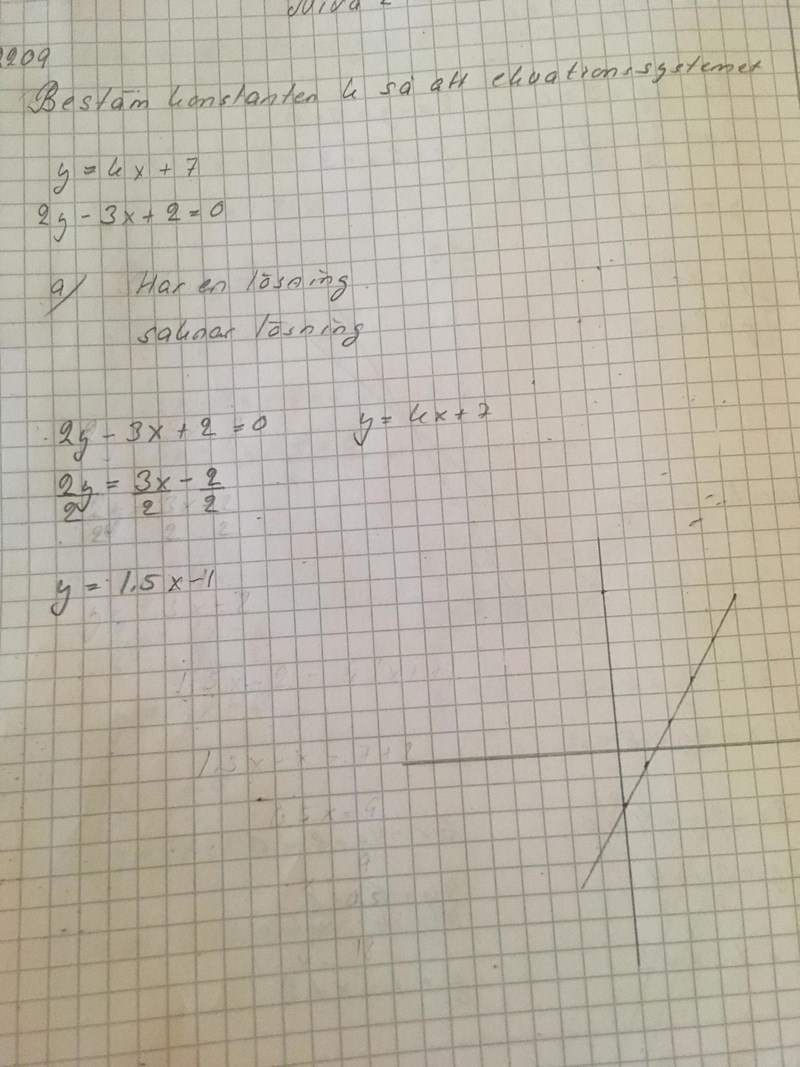 2209
Bestäm konstanten k så att ekvationssystemet
y = kx + 7
2y - 3x + 2 = 0
a) Har en lösning
saknar lösning
2y - 3x + 2 = 0 y = kx + 7
2y/2 = 3x/2 - 2/2
y = 1.5x - 1